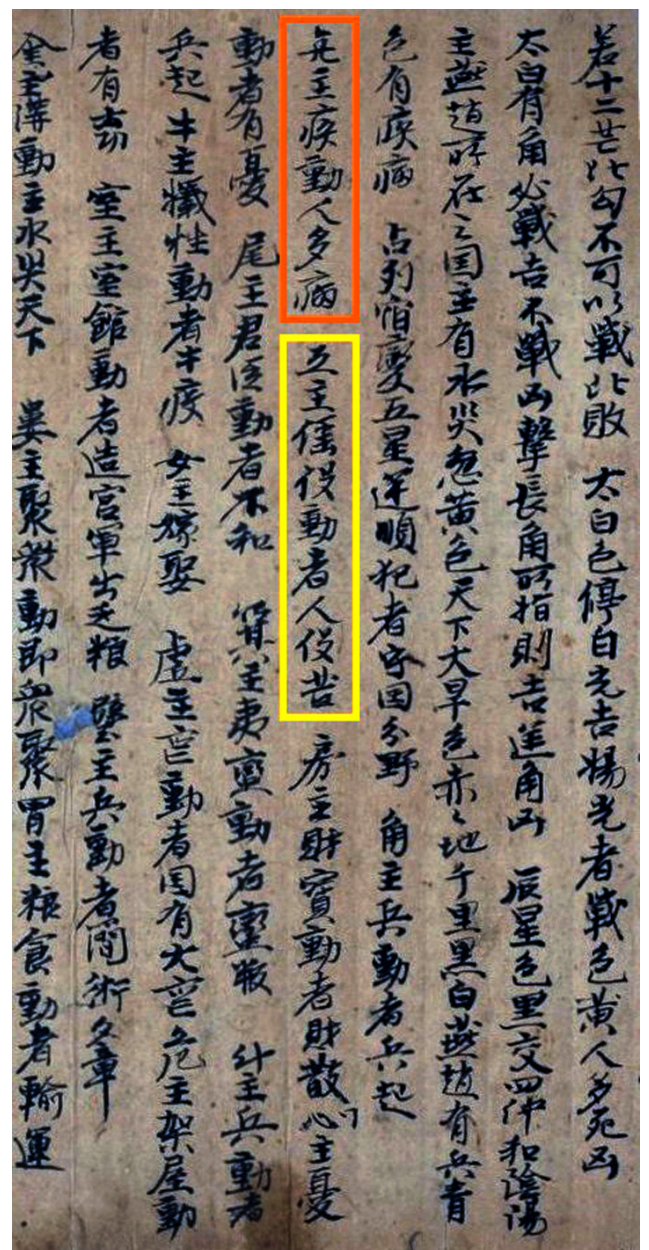 若十二芒比勾不可以戰比敗　太白色停白光吉楊光者戰色黃人多死凶
太白有角必戰吉不戰凶擊長角所指則吉送角凶　辰星色黑交四仲和陰陽
主燕趙所在之国主有水災忽黃色天下大旱色赤々地千里黑白燕趙有兵青
色有疾病　占列宿變五星逆順犯者守国分野　角主兵動者兵起
亢主疾動人多病　互主傜役動者人役苦　房主財寶動者財散心主憂
動者有憂　尾主君臣動者不和　箕主夷蠻動者蠻叛　斗主兵動者
兵起　牛主犧牲動者牛疫　女主嫁娶　虛主喪動者国有大喪危主架屋動
者有劫　室主室館動者造宮軍出乏粮　壁主兵動者閉術文章
奎主溝動主水災天下　婁主聚衆動即衆聚胃主粮食動者輸運